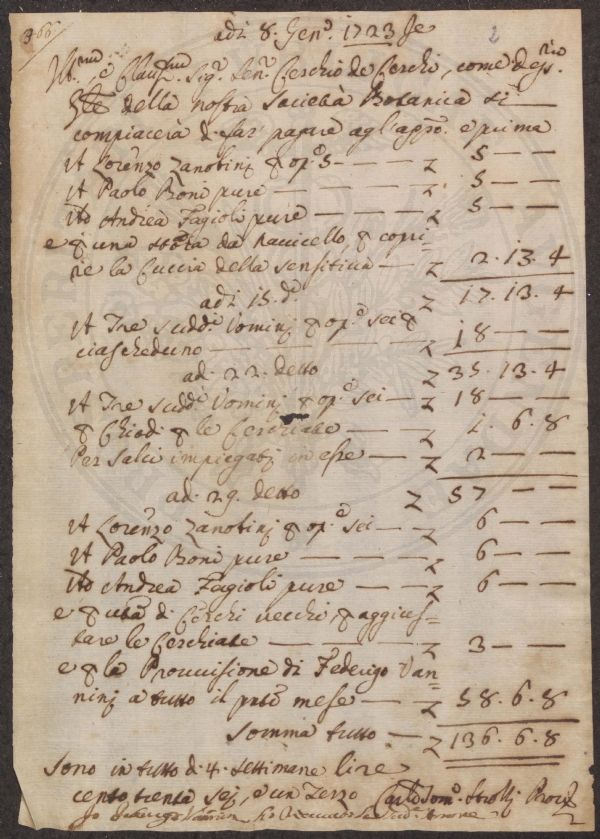 366
2
adi 8. Gen.o 1723 Je
Ill.mo, e Clariss.mo Sig.r Sen.re Cerchio de Cerchi, come degn.mo
della nostra Società Botanica si
compiacerà di far pagare agl'app.o e prima
A Lorenzo Zanobinj p op.e 5 — — — — £ 5 — —
A Paolo Boni pure — — — — £ 5 — —
Ad Andrea Fagioli pure — — — £ 5 — —
e p una stoia da navicello, p copri=
re la Cuccia della sensitiua — £ 2. 13. 4
adi 15. d.o £ 17. 13. 4
A Tre sudd.i Vominj p op.e sei p
ciascheduno — — — — £ 18 — —
ad. 22. detto £ 35. 13. 4
A Tre sudd.i Vominj p op.e sei — £ 18 — —
p Chiodi p le Cerchiate — — £ 1. 6. 8
Per salci impiegatj in esse — £ 2 — —
ad. 29. detto £ 57 — —
A Lorenzo Zanobinj p op.e sei — £ 6 — —
A Paolo Boni pure — — — — £ 6 — —
Ad Andrea Fagioli pure — — £ 6 — —
e p di Cerchi uecchi, p aggius=
tare le Cerchiate — — — — £ 3 — —
e p la Prouuisione di Federigo Van=
ninj a tutto il pnte mese — — £ 58. 6. 8
Somma tutto — £ 136. 6. 8
Sono in tutto di 4. settimane lire
cento trenta sej, e un terzo Carlo Tom.o Strozzi Prou.re
Io Federigo Vannini ho riceuuto